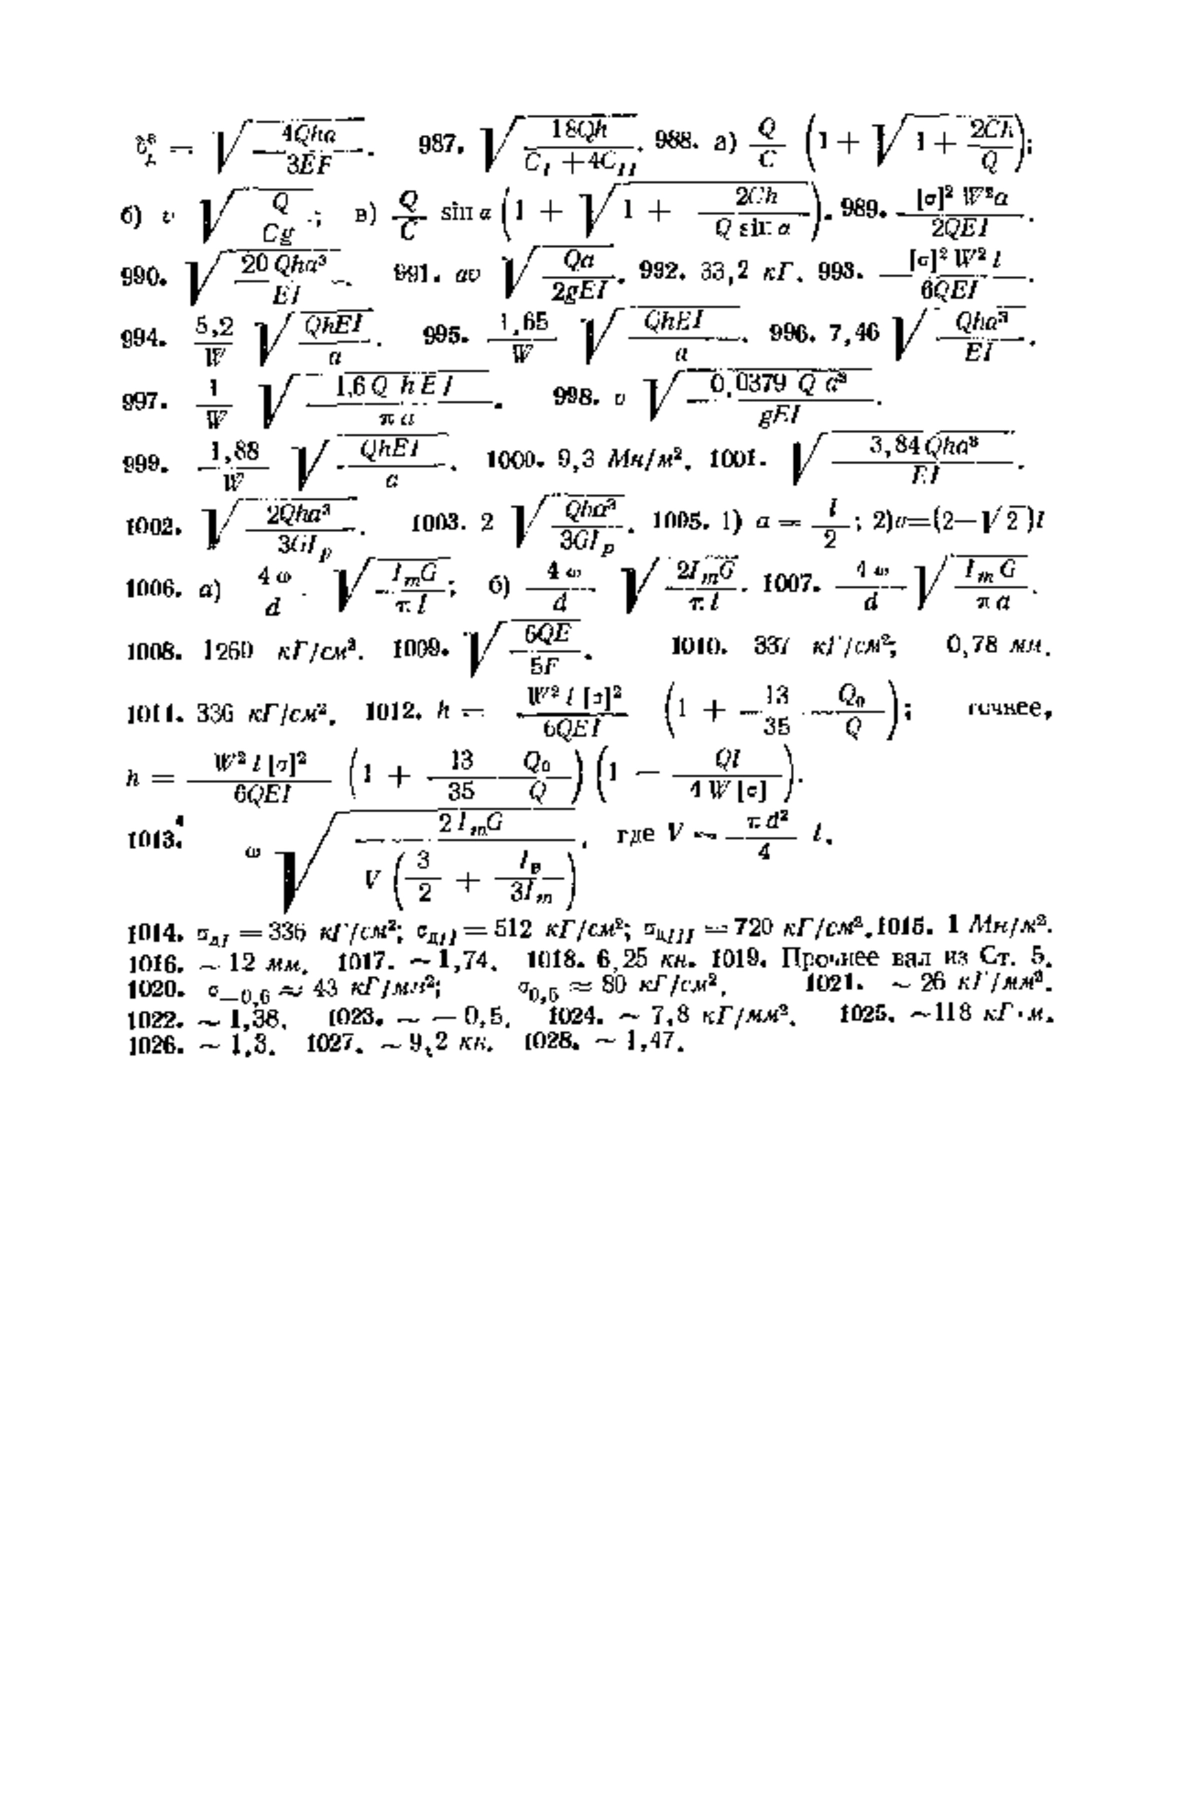 δ_д^в = √(4Qha/3EF). 987. √(18Qh/(C_I + 4C_II)). 988. а) Q/C (1 + √(1 + 2Ch/Q));
б) v √(Q/Cg); в) Q/C sin α (1 + √(1 + 2Ch/(Q sin α))). 989. [σ]² W²a/2QEI.
990. √(20 Qha³/EI). 991. av √(Qa/2gEI). 992. 33,2 кГ. 993. [σ]² W² l/6QEI.
994. 5,2/W √(QhEI/a). 995. 1,65/W √(QhEI/a). 996. 7,46 √(Qha³/EI).
997. 1/W √(1,6 Q h E I/π a). 998. v √(0,0379 Q a³/gEI).
999. 1,88/W √(QhEI/a). 1000. 9,3 Мн/м². 1001. √(3,84 Qha³/EI).
1002. √(2Qha³/3GI_p). 1003. 2 √(Qha³/3GI_p). 1005. 1) a = l/2; 2) a=(2−√2)l
1006. а) 4ω/d √(I_m G/π l); б) 4ω/d √(2I_m G/π l). 1007. 4ω/d √(I_m G/π a).
1008. 1260 кГ/см². 1009. √(6QE/5F). 1010. 337 кГ/см²; 0,78 мм.
1011. 336 кГ/см². 1012. h = W² l [σ]²/6QEI (1 + 13/35 Q₀/Q); точнее,
h = W² l [σ]²/6QEI (1 + 13/35 Q₀/Q) (1 − Ql/4W [σ]).
1013. ω √(2I_m G/(V (3/2 + I_в/3I_m))), где V = π d²/4 l.
1014. σ_дI = 336 кГ/см²; σ_дII = 512 кГ/см²; σ_дIII = 720 кГ/см². 1015. 1 Мн/м².
1016. ~ 12 мм. 1017. ~ 1,74. 1018. 6,25 кн. 1019. Прочнее вал из Ст. 5.
1020. σ_−0,6 ≈ 43 кГ/мм²; σ_0,5 ≈ 80 кГ/см². 1021. ~ 26 кГ/мм².
1022. ~ 1,38. 1023. ~ − 0,5. 1024. ~ 7,8 кГ/мм². 1025. ~118 кГ·м.
1026. ~ 1,3. 1027. ~ 9,2 кн. 1028. ~ 1,47.